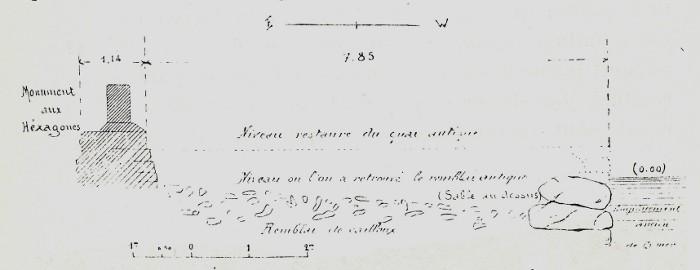 E W
1,14
7.85
Monument
aux
Héxagones
Niveau restauré du quai antique
Niveau où l'on a retrouvé le remblai antique
(Sable au dessous)
(0.00)
Remblai de cailloux
ancien
de la mer
0 1